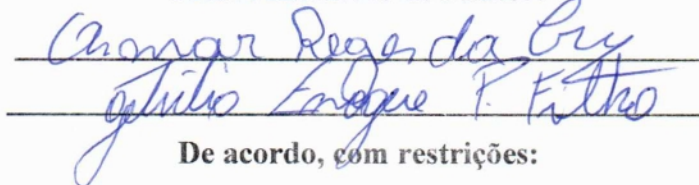 Osmar Reges da Cruz
Getulio Enoque P. Filho
De acordo, com restrições: